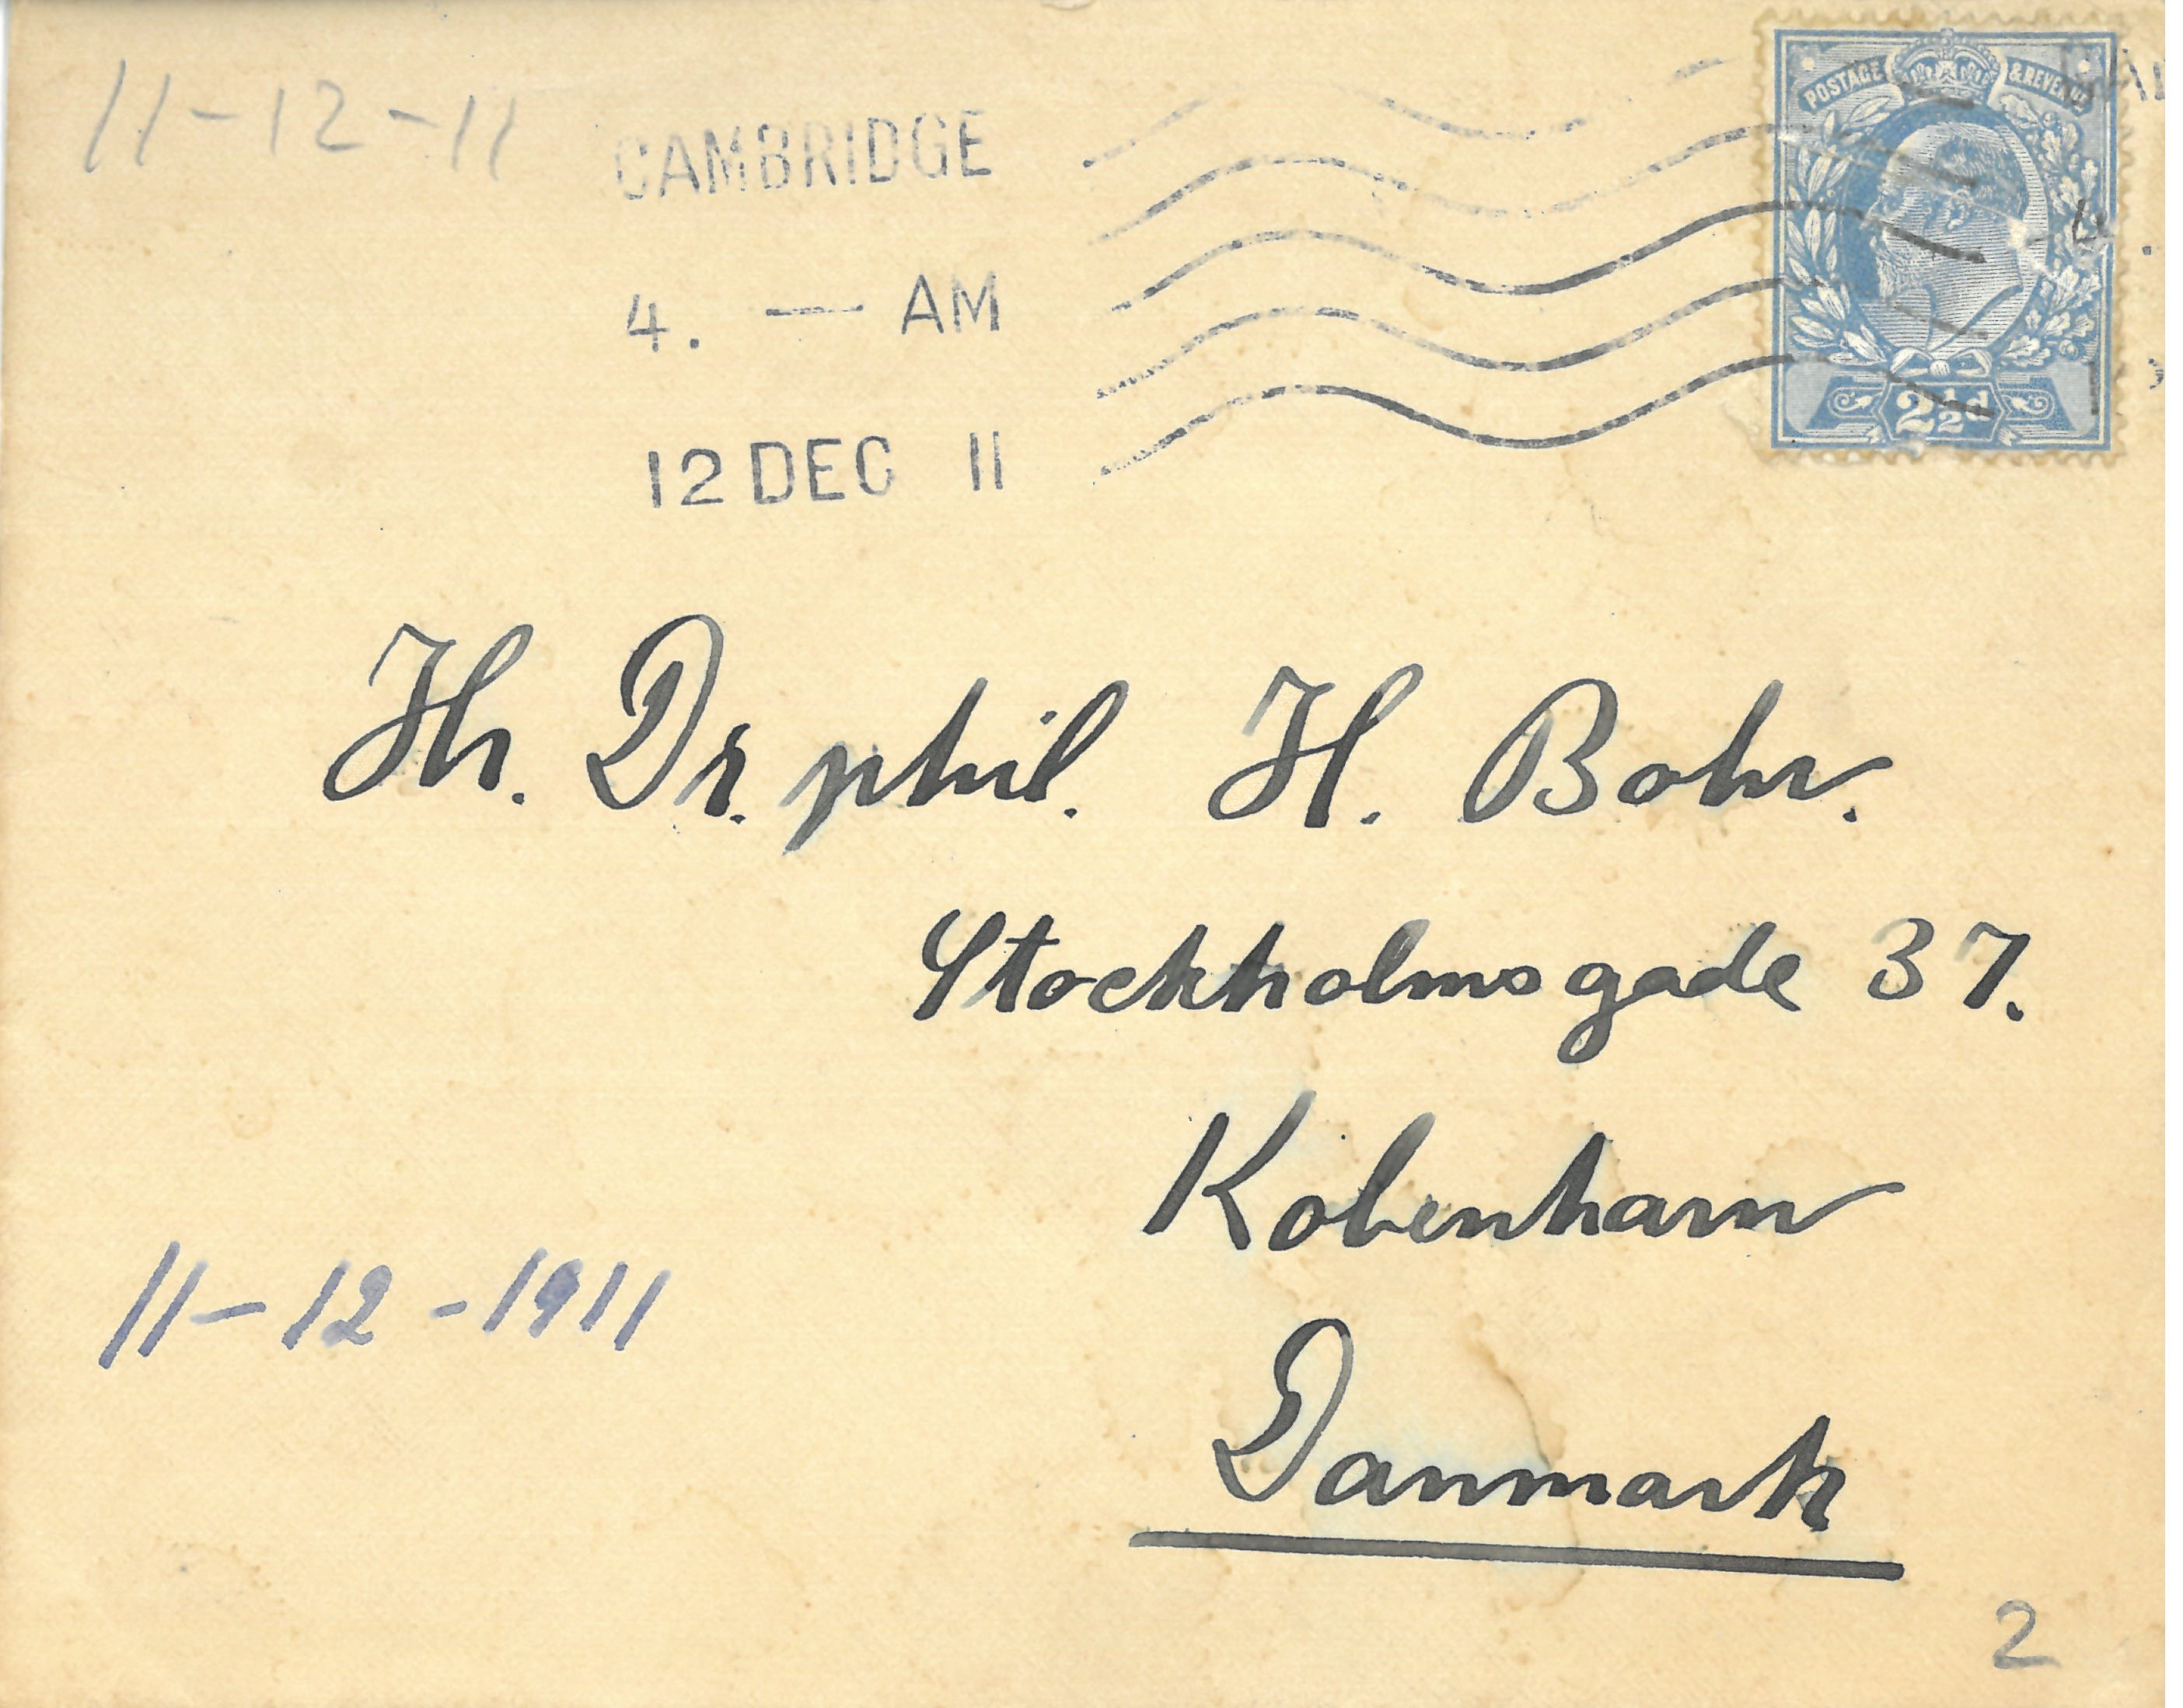 11-12-11
CAMBRIDGE
4. — AM
12 DEC 11
POSTAGE & REVENUE
2½d
4.
Hr. Dr. phil. H. Bohr.
Stockholmsgade 37.
Kobenhavn
Danmark
11-12-1911
2